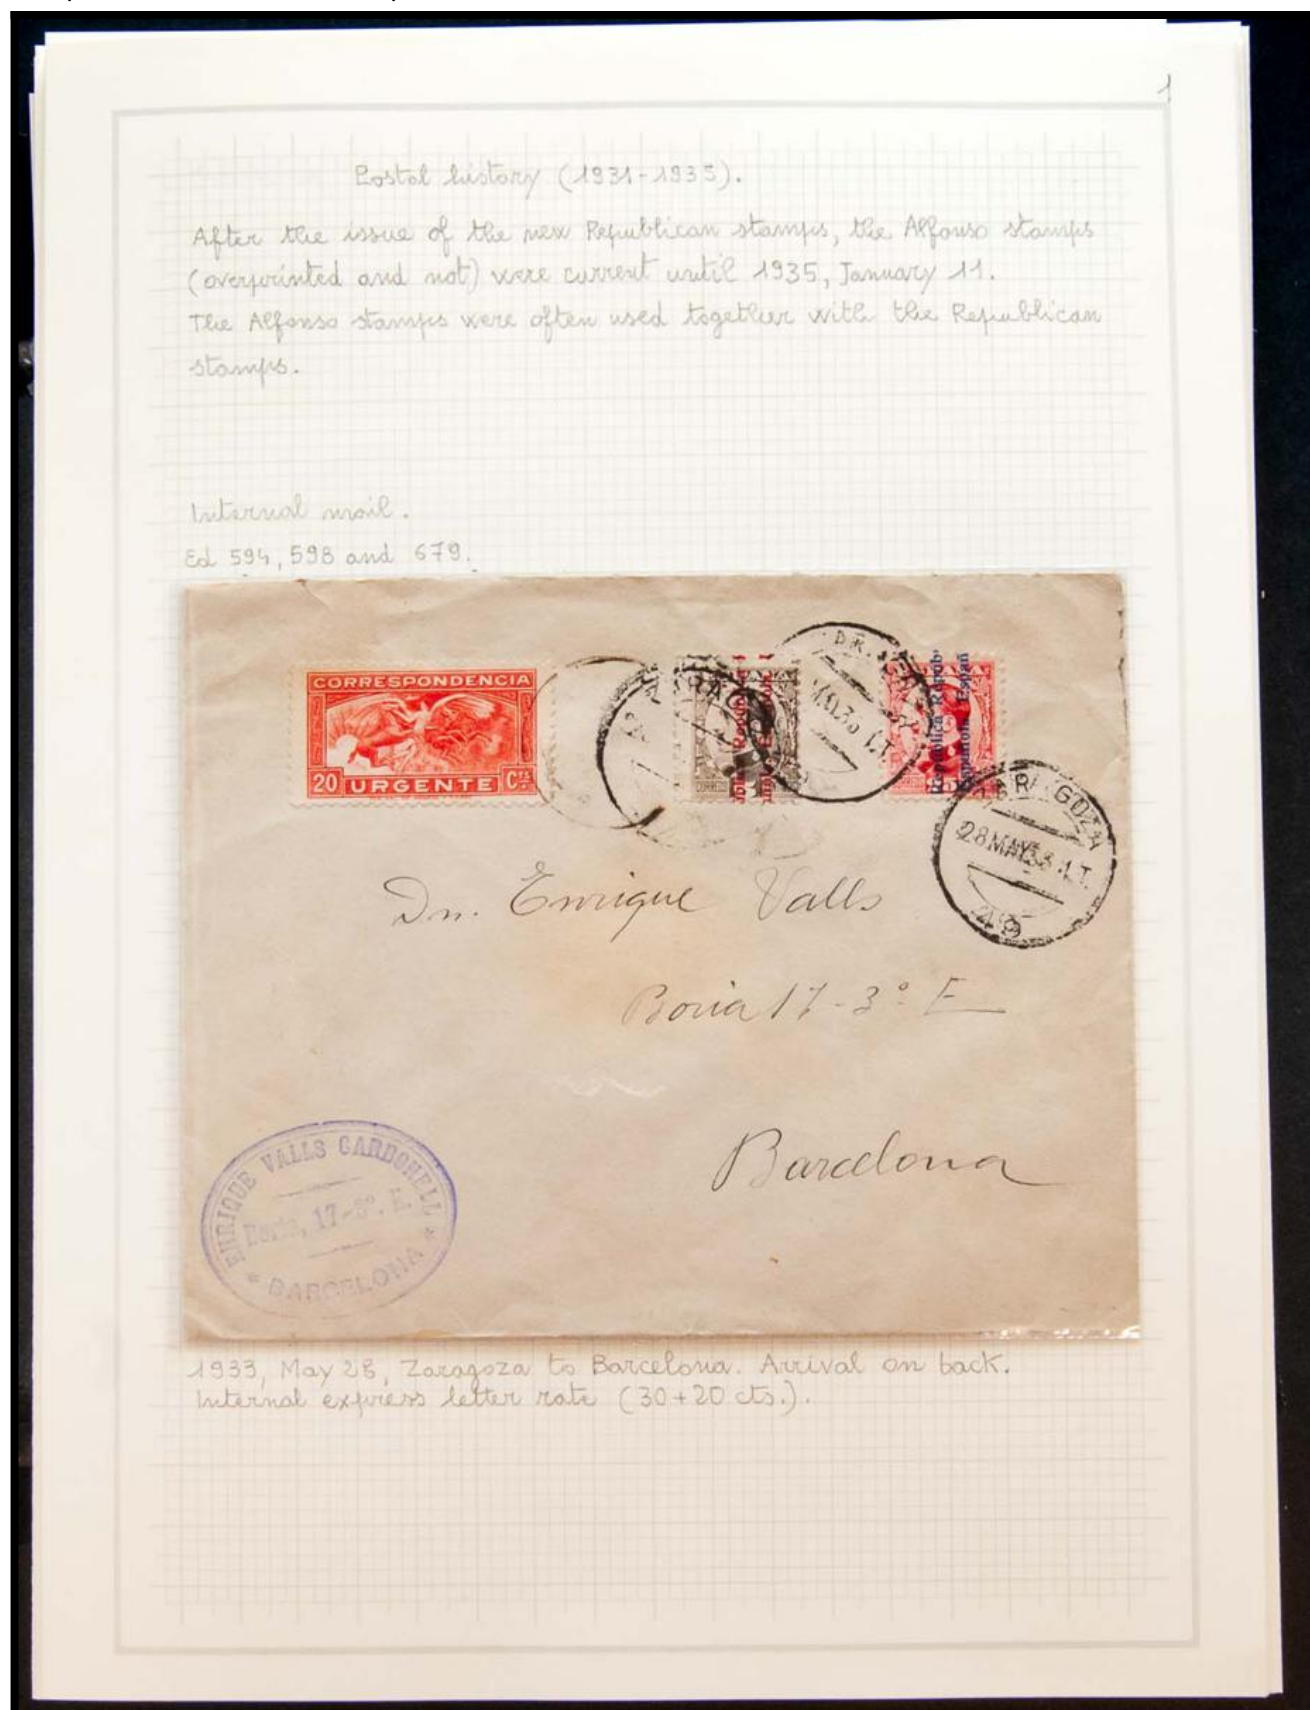 1
Postal history (1931-1935).
After the issue of the new Republican stamps, the Alfonso stamps
(overprinted and not) were current until 1935, January 11.
The Alfonso stamps were often used together with the Republican
stamps.
Internal mail.
Ed 594, 598 and 679.
CORRESPONDENCIA
20 URGENTE Cts
CORREOS
República Repúb
Española. Españ
ZARAGOZA
28 MAY 33 .1.T.
Dn. Enrique Valls
Boria 17-3º E
Barcelona
ENRIQUE VALLS CARBONELL
Boria, 17-3º. E.
* BARCELONA *
1933, May 28, Zaragoza to Barcelona. Arrival on back.
Internal express letter rate (30+20 cts.).